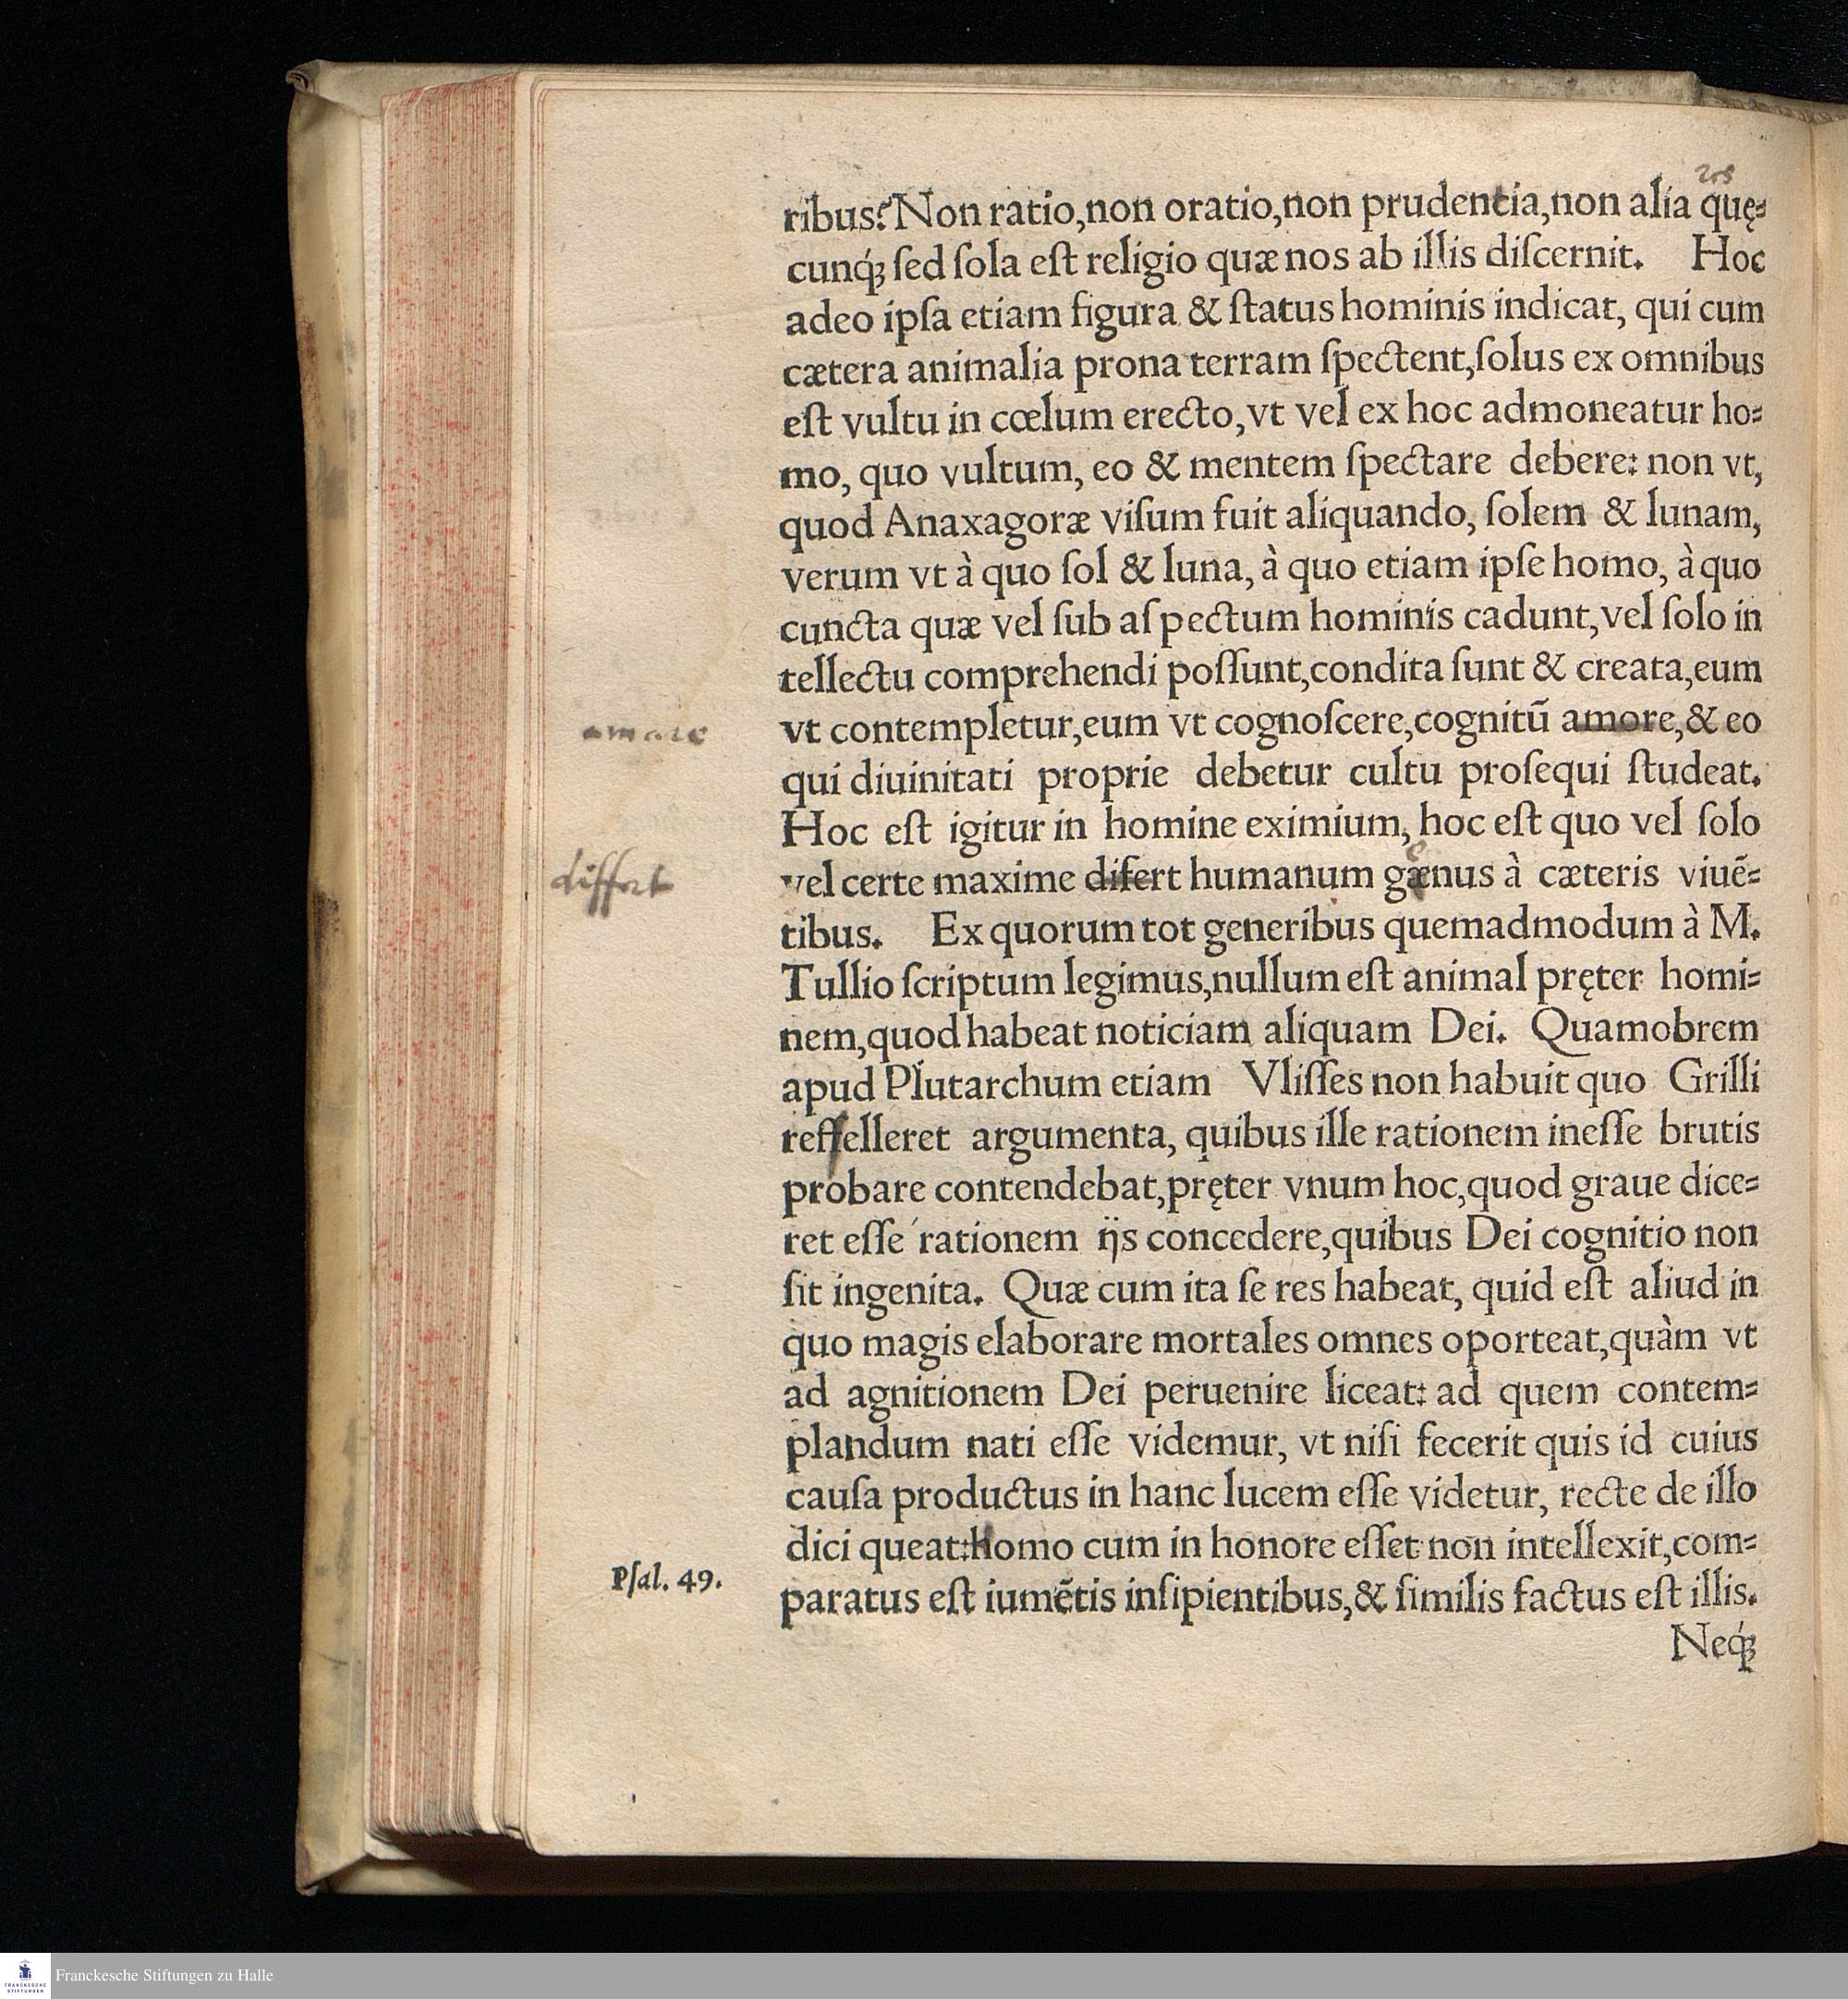 ribus? Non ratio, non oratio, non prudentia, non alia quę⸗
cunq́ꝫ sed sola est religio quæ nos ab illis discernit. Hoc
adeo ipſa etiam figura & ſtatus hominis indicat, qui cum
cætera animalia prona terram ſpectent, ſolus ex omnibus
eſt vultu in cœlum erecto, vt vel ex hoc admoneatur ho⸗
mo, quo vultum, eo & mentem ſpectare debere: non vt,
quod Anaxagoræ viſum fuit aliquando, ſolem & lunam,
verum vt à quo ſol & luna, à quo etiam ipſe homo, à quo
cuncta quæ vel ſub aſpectum hominis cadunt, vel ſolo in
tellectu comprehendi poſſunt, condita ſunt & creata, eum
amare
vt contempletur, eum vt cognoſcere, cognitũ amore, & eo
qui diuinitati proprie debetur cultu proſequi ſtudeat.
Hoc eſt igitur in homine eximium, hoc eſt quo vel ſolo
differt
vel certe maxime difert humanum gænus à cæteris viuẽ⸗
tibus. Ex quorum tot generibus quemadmodum à M.
Tullio ſcriptum legimus, nullum eſt animal pręter homi⸗
nem, quod habeat noticiam aliquam Dei. Quamobrem
apud Plutarchum etiam Vliſſes non habuit quo Grilli
reffelleret argumenta, quibus ille rationem ineſſe brutis
probare contendebat, pręter vnum hoc, quod graue dice⸗
ret eſſe rationem ijs concedere, quibus Dei cognitio non
ſit ingenita. Quæ cum ita ſe res habeat, quid eſt aliud in
quo magis elaborare mortales omnes oporteat, quàm vt
ad agnitionem Dei peruenire liceat: ad quem contem⸗
plandum nati eſſe videmur, vt niſi fecerit quis id cuius
cauſa productus in hanc lucem eſſe videtur, recte de illo
dici queat: homo cum in honore eſſet non intellexit, com⸗
Pſal. 49.
paratus eſt iumẽtis inſipientibus, & ſimilis factus eſt illis.
Neq́ꝫ
Franckesche Stiftungen zu Halle
FRANCKESCHE
STIFTUNGEN